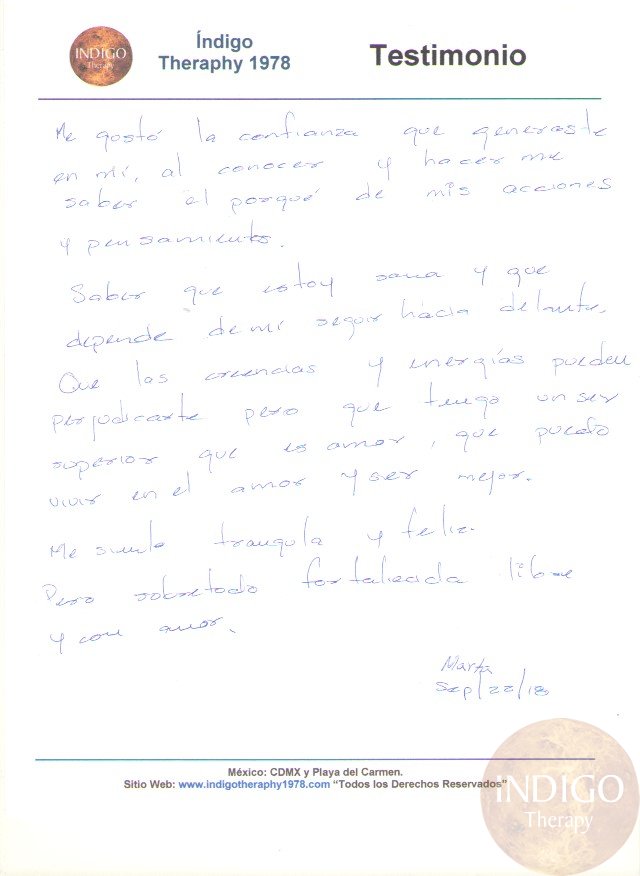 INDIGO
Therapy
Índigo
Theraphy 1978
Testimonio
Me gostó la confianza que generaste
en mí, al conocer y hacer me
saber el porqué de mis acciones
y pensamiento.
Saber que estoy sana y que
depende de mí seguir hacia delante.
Que las creencias y energías pueden
perjudicarte pero que tengo un ser
superior que es amor, que puedo
vivir en el amor y ser mejor.
Me siento tranquila y feliz.
Pero sobretodo fortalecida libre
y con amor.
Marta
Sep/22/18
México: CDMX y Playa del Carmen.
Sitio Web: www.indigotheraphy1978.com “Todos los Derechos Reservados”
INDIGO
Therapy